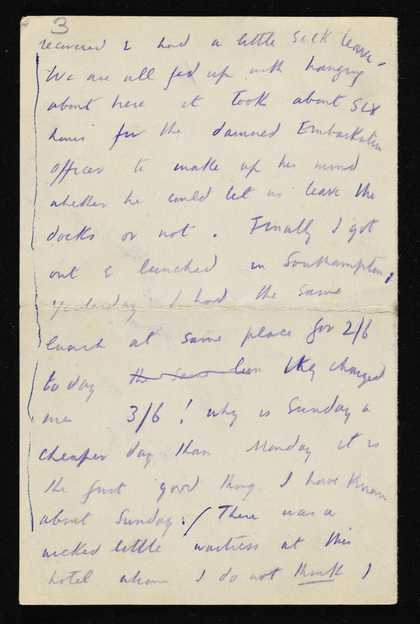 3
recovered & had a little sick leave.
We are all fed up with hanging
about here it took about six
hours for the damned Embarkation
officer to make up his mind
whether he could let us leave the
docks or not. Finally I got
out & lunched in Southampton,
yesterday I had the same
lunch at same place for 2/6
today they charged
me 3/6! why is Sunday a
cheaper day than Monday it is
the first good thing I have known
about Sunday. / There was a
wicked little waitress at this
hotel whom I do not think I